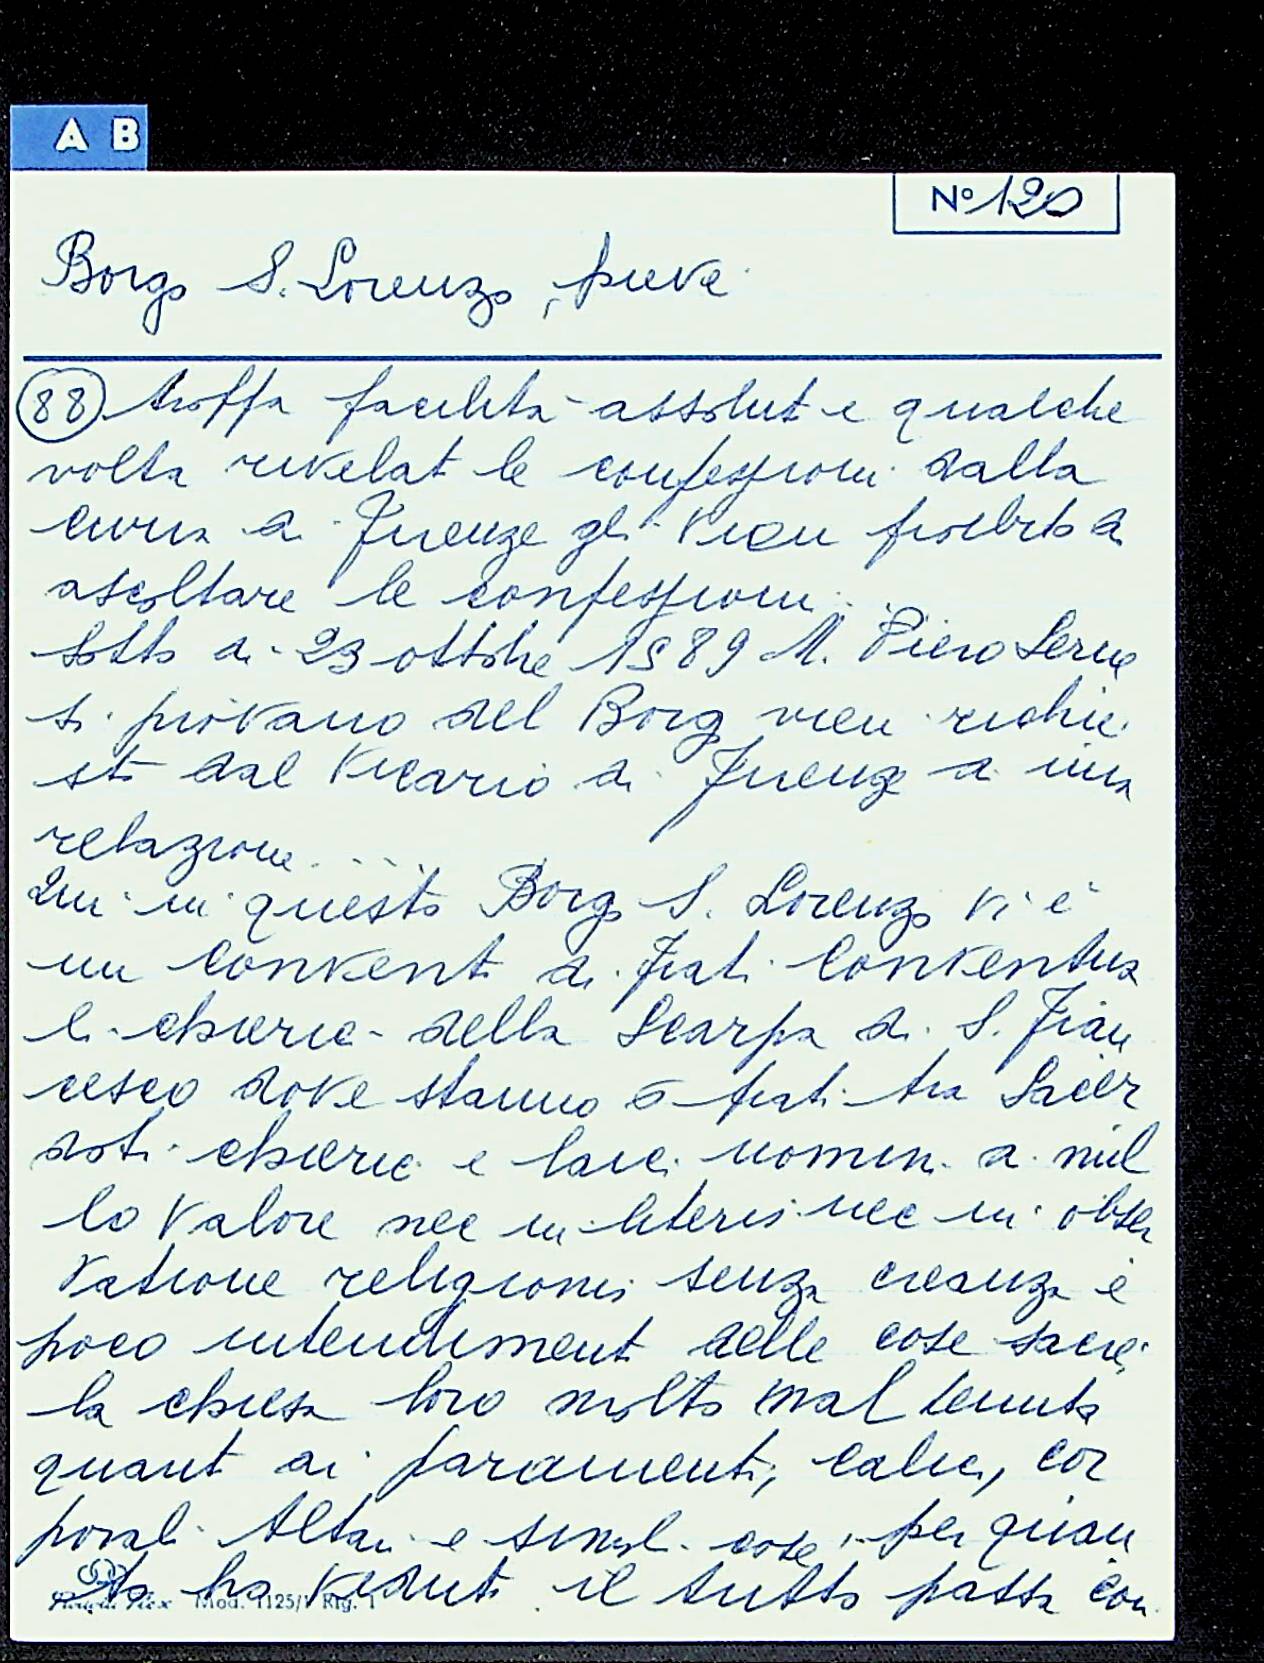 A B
Nº 120
Borgo S. Lorenzo, pieve
88 troppa facilità assoluto e qualche
volta rivelato le confessioni dalla
curia di Firenze gli vien proibito di
ascoltare le confessioni.
Sotto di 23 ottobre 1589 M. Piero
si piovano del Borgo vien richie
sto dal Vicario di Firenze di una
relazione....
Qui in questo Borgo S. Lorenzo vi è
un convento di frati Conventua
li chierici della Scarpa di S. Fran
cesco dove stanno 6 frati tra Sacer
doti chierici e laici uomini di nul
lo valore nec in literis nec in obser
vatione religionis senza creanza e
poco intendimento delle cose sacre,
la chiesa loro molto mal tenuta
quanto ai paramenti, calici, cor
porali Altari e simili cose, per quan
to ho veduto il tutto passa con
Mod. 1125/1 Rig. 1